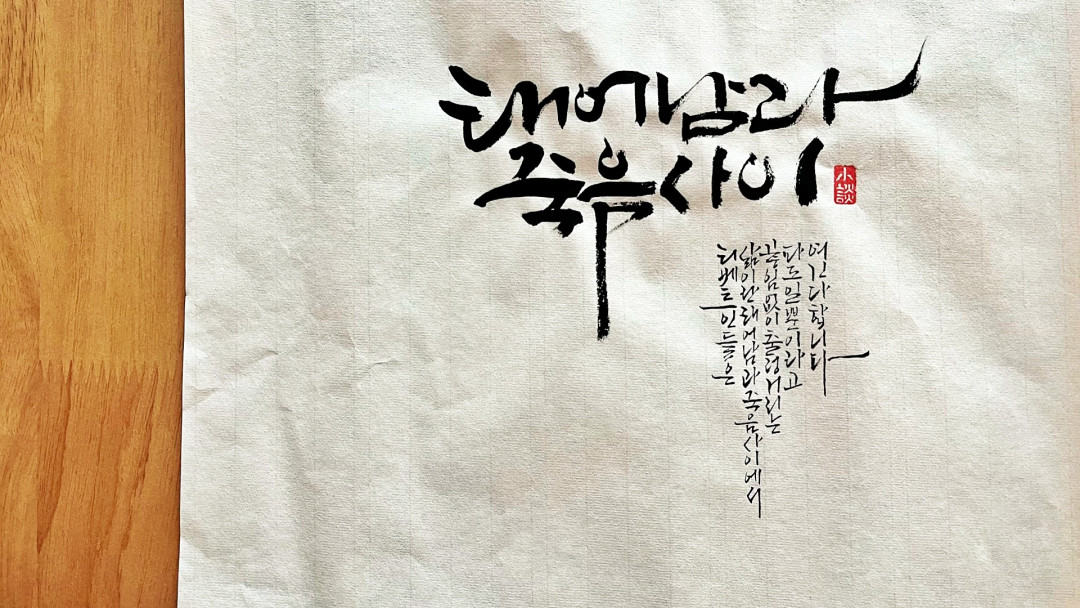 태어남과
죽음 사이
小談
티베트인들은
삶이란 태어남과 죽음 사이에서
끊임없이 출렁거리는
파도일 뿐이라고
여긴다 합니다